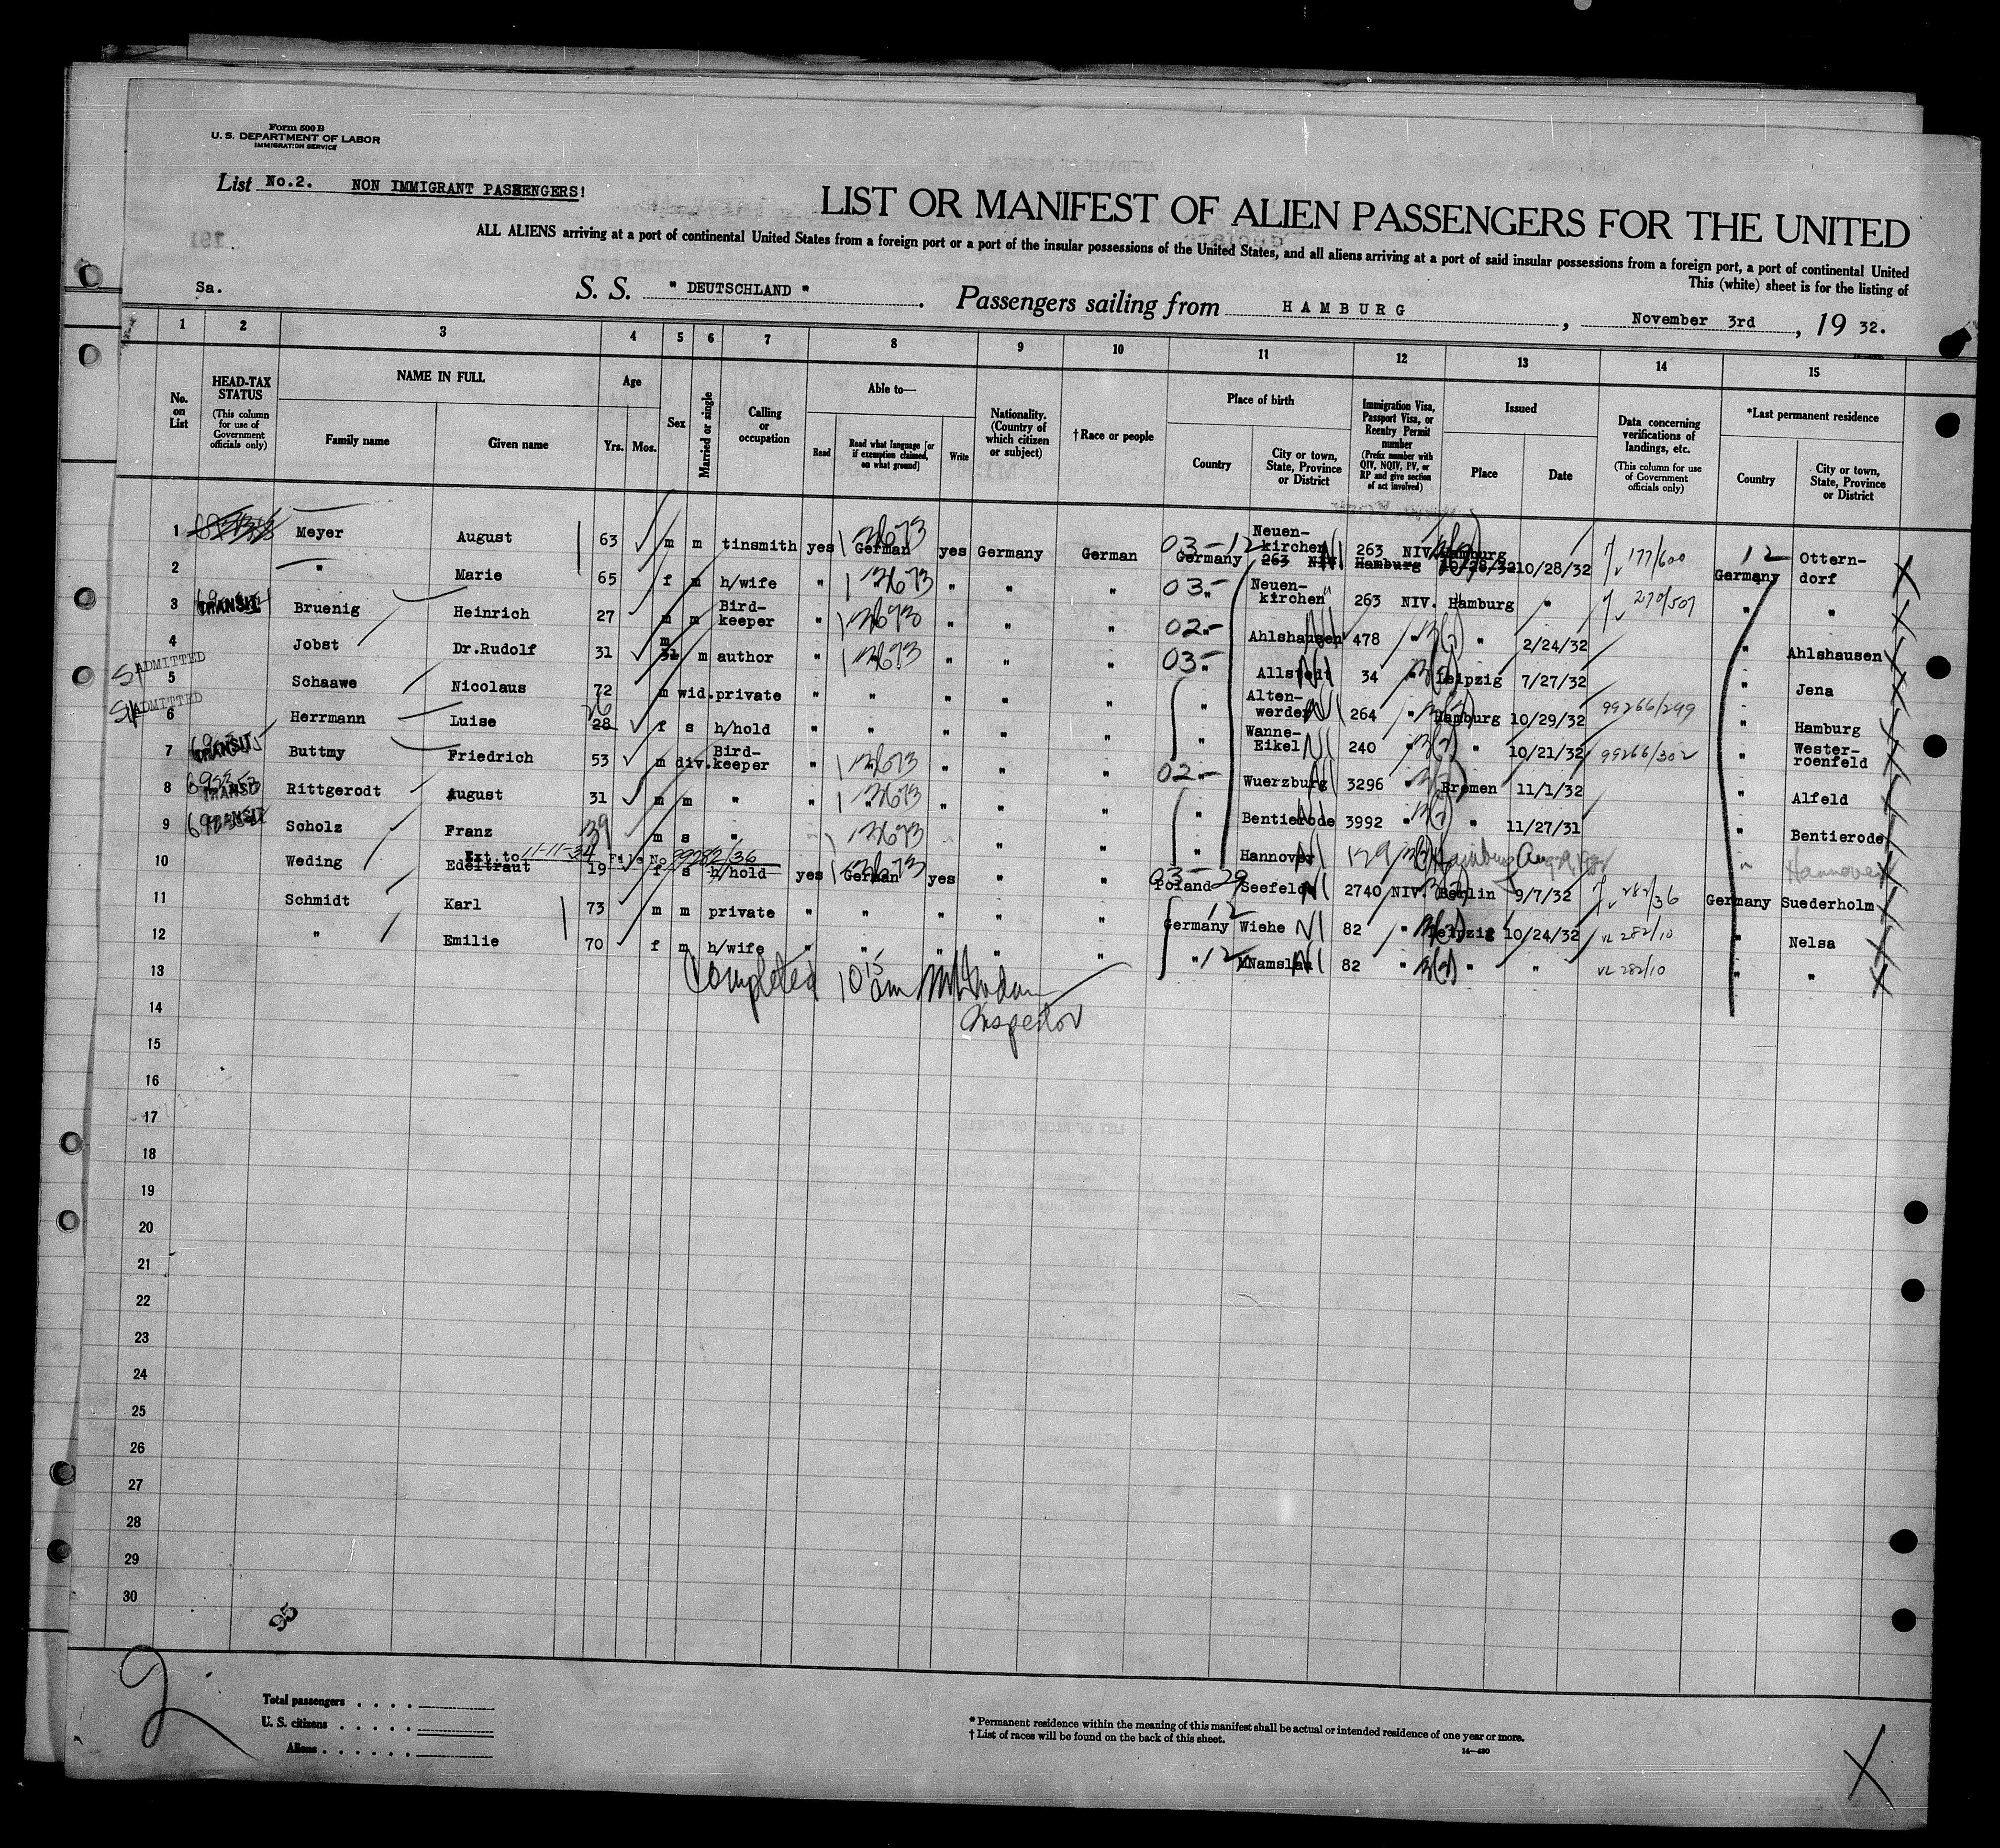 Form 500 B
U. S. DEPARTMENT OF LABOR
IMMIGRATION SERVICE
List No.2. NON IMMIGRANT PASSENGERS!
LIST OR MANIFEST OF ALIEN PASSENGERS FOR THE UNITED
ALL ALIENS arriving at a port of continental United States from a foreign port or a port of the insular possessions of the United States, and all aliens arriving at a port of said insular possessions from a foreign port, a port of continental United
This (white) sheet is for the listing of
Sa. S. S. " DEUTSCHLAND " . Passengers sailing from HAMBURG , November 3rd , 19 32.
1 2 3 4 5 6 7 8 9 10 11 12 13 14 15
No. on List
HEAD-TAX STATUS (This column for use of Government officials only)
NAME IN FULL Family name Given name
Age Yrs. Mos.
Sex
Married or single
Calling or occupation
Able to— Read Read what language [or if exemption claimed, on what ground] Write
Nationality. (Country of which citizen or subject)
†Race or people
Place of birth Country City or town, State, Province or District
Immigration Visa, Passport Visa, or Reentry Permit number (Prefix number with QIV, NQIV, PV, or RP and give section of act involved)
Issued Place Date
Data concerning verifications of landings, etc. (This column for use of Government officials only)
*Last permanent residence Country City or town, State, Province or District
1 Meyer August 63 m m tinsmith yes German yes Germany German 03-12 Germany Neuen-kirchen 263 NIV. Hamburg 10/28/32 177/600 12 Germany Ottern-dorf
263 NIV. Hamburg 10/28/32
2 " Marie 65 f m h/wife " " " " " 03- " Neuen-kirchen 263 NIV. Hamburg " 270/507 " "
3 TRANSIT Bruenig Heinrich 27 m m Bird-keeper " " " " 02- " Ahlshausen 478 " " 2/24/32 " Ahlshausen
4 Jobst Dr.Rudolf 31 m 31 m author " " " " 03- " Allstedt 34 " Leipzig 7/27/32 " Jena
5 ADMITTED Schaawe Nicolaus 72 m wid. private " " " " " " Alten-werder 264 " Hamburg 10/29/32 99266/299 " Hamburg
6 ADMITTED Herrmann Luise 28 26 f s h/hold " " " " " " Wanne-Eikel 240 " " 10/21/32 99266/302 " Wester-roenfeld
7 TRANSIT Buttmy Friedrich 53 m div. Bird-keeper " " " " 02- Wuerzburg 3296 " Bremen 11/1/32 " Alfeld
8 TRANSIT Rittgerodt August 31 m m " " " " " " Bentierode 3992 " " 11/27/31 " Bentierode
9 TRANSIT Scholz Franz 39 m s " " " " " Hannover 129 Hamburg Aug " Hannover
Ext to 11-11-34 File No 99282/36
10 Weding Edeltraut 19 f s h/hold yes German yes " " 03-29 Poland Seefeld 2740 NIV. Berlin 9/7/32 282/36 Germany Suederholm
11 Schmidt Karl 73 m m private " " " " " 12 Germany Wiehe 82 " Leipzig 10/24/32 VL 282/10 " Nelsa
12 " Emilie 70 f m h/wife " " " " " " 12 Namslau 82 " " " VL 282/10 " "
13
Completed 10 15 am
Inspector
14
15
16
17
18
19
20
21
22
23
24
25
26
27
28
29
30
2
Total passengers . . . .
U. S. citizens . . . . .
Aliens . . . . . .
* Permanent residence within the meaning of this manifest shall be actual or intended residence of one year or more.
† List of races will be found on the back of this sheet.
14—430